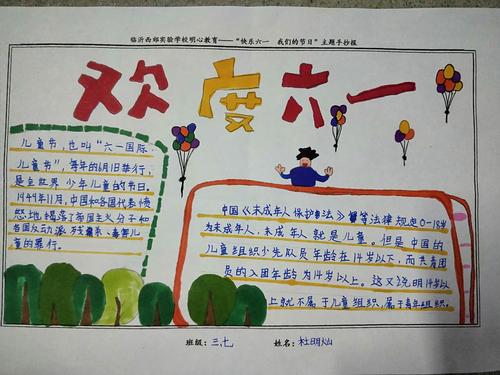 临沂西郊实验学校明心教育——“快乐六一 我们的节日”主题手抄报
欢度六一
儿童节，也叫“六一国际
儿童节”，每年的6月1日举行，
是全世界少年儿童的节日。
1949年11月，中国和各国代表愤
怒地揭露了帝国主义分子和
各国反动派残害、毒害儿
童的罪行。
中国《未成年人保护法》等法律规定0-18岁
为未成年人，未成年人就是儿童。但是中国的
儿童组织少先队员年龄在14岁以下，而共青团
员的入团年龄为14岁以上。这又说明14岁以
上就不属于儿童组织，属于青年组织。
班级：三、七 姓名：杜明灿